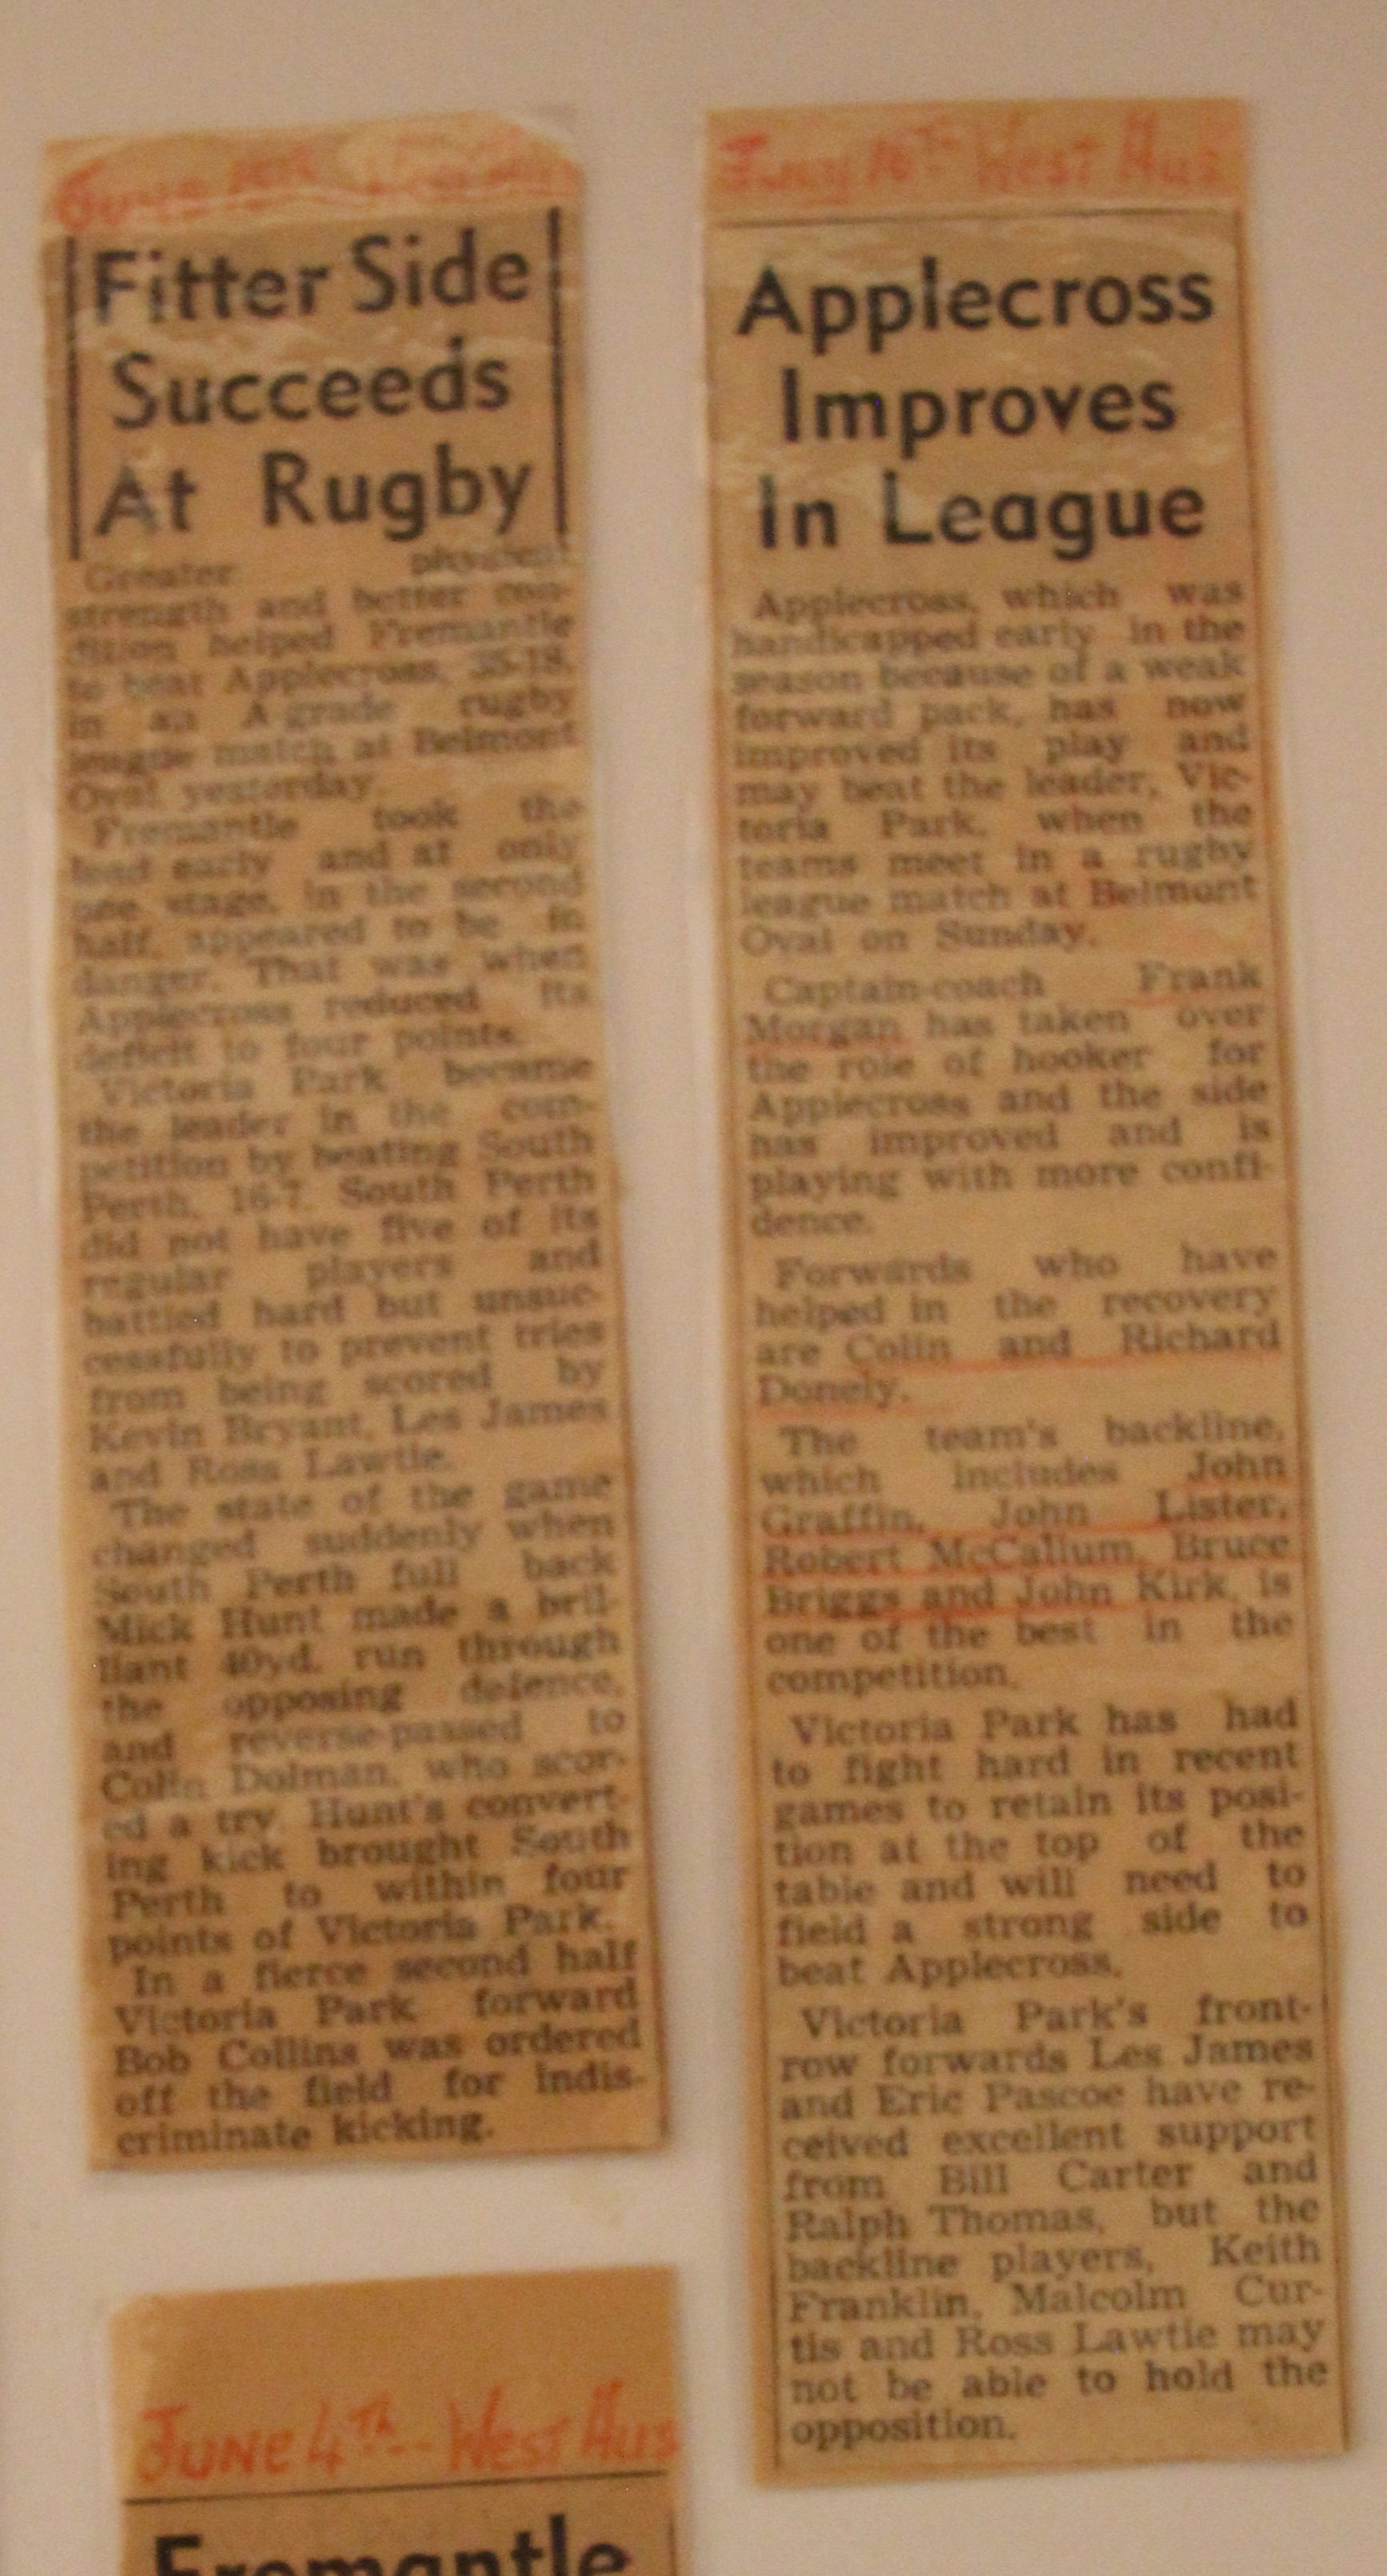 June
Fitter Side
Succeeds
At Rugby
Greater physical
strength and better con-
dition helped Fremantle
to beat Applecross, 35-18,
in an A-grade rugby
league match at Belmont
Oval yesterday.
Fremantle took the
lead early and at only
one stage, in the second
half, appeared to be in
danger. That was when
Applecross reduced its
deficit to four points.
Victoria Park became
the leader in the com-
petition by beating South
Perth, 16-7. South Perth
did not have five of its
regular players and
battled hard but unsuc-
cessfully to prevent tries
from being scored by
Kevin Bryant, Les James
and Ross Lawtie.
The state of the game
changed suddenly when
South Perth full back
Mick Hunt made a bril-
liant 40yd. run through
the opposing defence,
and reverse-passed to
Colin Dolman, who scor-
ed a try. Hunt's convert-
ing kick brought South
Perth to within four
points of Victoria Park.
In a fierce second half
Victoria Park forward
Bob Collins was ordered
off the field for indis-
criminate kicking.
JUNE 4TH -- WEST AUS
Fremantle
16TH WEST AUS
Applecross
Improves
In League
Applecross, which was
handicapped early in the
season because of a weak
forward pack, has now
improved its play and
may beat the leader, Vic-
toria Park, when the
teams meet in a rugby
league match at Belmont
Oval on Sunday.
Captain-coach Frank
Morgan has taken over
the role of hooker for
Applecross and the side
has improved and is
playing with more confi-
dence.
Forwards who have
helped in the recovery
are Colin and Richard
Donely.
The team's backline,
which includes John
Graffin, John Lister,
Robert McCallum, Bruce
Briggs and John Kirk, is
one of the best in the
competition.
Victoria Park has had
to fight hard in recent
games to retain its posi-
tion at the top of the
table and will need to
field a strong side to
beat Applecross.
Victoria Park's front-
row forwards Les James
and Eric Pascoe have re-
ceived excellent support
from Bill Carter and
Ralph Thomas, but the
backline players, Keith
Franklin, Malcolm Cur-
tis and Ross Lawtie may
not be able to hold the
opposition.